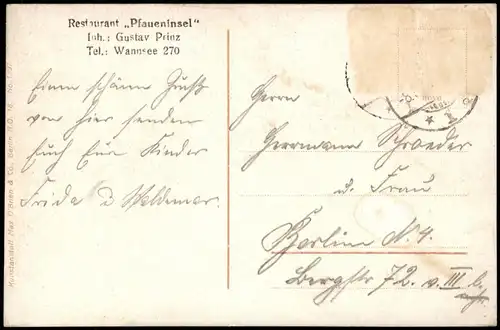 Restaurant „Pfaueninsel“
Inh.: Gustav Prinz
Tel.: Wannsee 270
Einen schönen Gruß
von hier senden
Euch Eure Kinder
Frida u Waldemar.
Herrn
Herrmann Schroeder
u. Frau
Berlin N. 4.
Bergstr 72. v. III b.
Kunstanstalt Max O'Brien & Co. Berlin